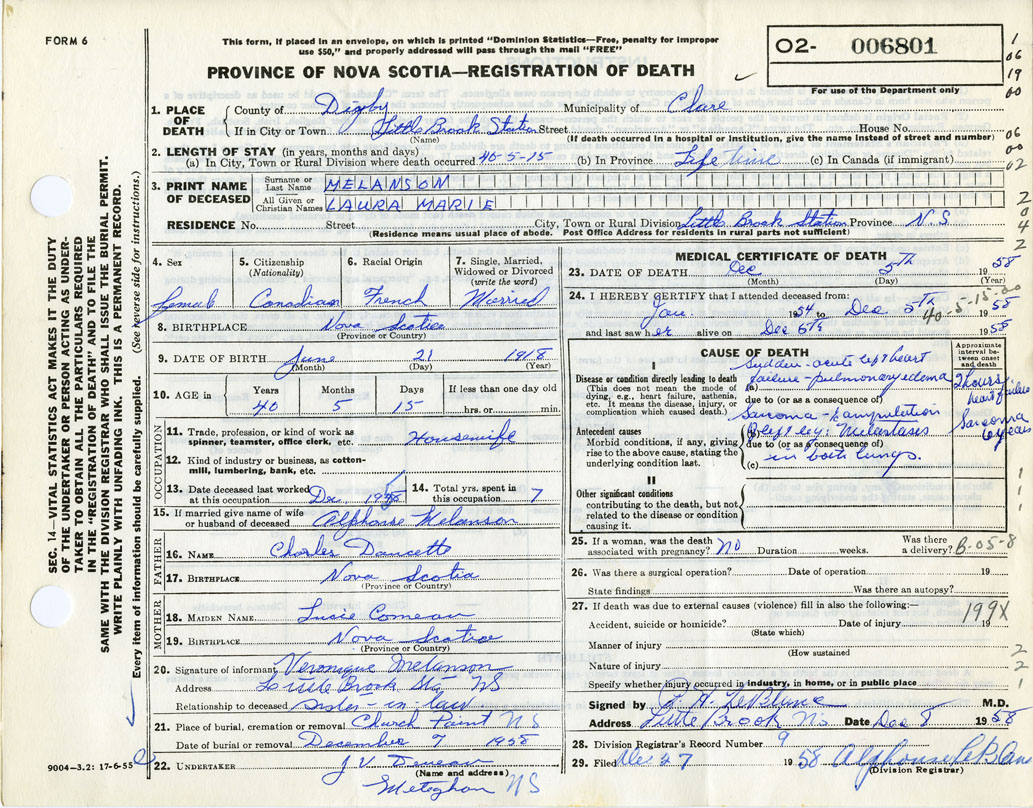 FORM 6
This form, if placed in an envelope, on which is printed "Dominion Statistics—Free, penalty for improper
use $50," and properly addressed will pass through the mail "FREE"
PROVINCE OF NOVA SCOTIA—REGISTRATION OF DEATH
02- 006801
For use of the Department only
1
06
19
00
06
00
02
2
0
4
2
1. PLACE OF DEATH
County of Digby Municipality of Clare
If in City or Town Little Brook Station Street House No.
(Name) (If death occurred in a hospital or institution, give the name instead of street and number)
2. LENGTH OF STAY (in years, months and days)
(a) In City, Town or Rural Division where death occurred 40-5-15 (b) In Province Life time (c) In Canada (if immigrant)
3. PRINT NAME OF DECEASED
Surname or Last Name MELANSON
All Given or Christian Names LAURA MARIE
RESIDENCE No. Street City, Town or Rural Division Little Brook Station Province N.S
(Residence means usual place of abode. Post Office Address for residents in rural parts not sufficient)
4. Sex female
5. Citizenship (Nationality) Canadian
6. Racial Origin French
7. Single, Married, Widowed or Divorced (write the word) Married
8. BIRTHPLACE Nova Scotia
(Province or Country)
9. DATE OF BIRTH June 21 1918
(Month) (Day) (Year)
10. AGE in Years 40 Months 5 Days 15 If less than one day old hrs. or min.
OCCUPATION
11. Trade, profession, or kind of work as spinner, teamster, office clerk, etc. Housewife
12. Kind of industry or business, as cotton-mill, lumbering, bank, etc.
13. Date deceased last worked at this occupation Dec 1958
14. Total yrs. spent in this occupation 7
15. If married give name of wife or husband of deceased Alphonse Melanson
FATHER
16. NAME Charles Doucette
17. BIRTHPLACE Nova Scotia
(Province or Country)
MOTHER
18. MAIDEN NAME Lucie Comeau
19. BIRTHPLACE Nova Scotia
(Province or Country)
20. Signature of informant Veronique Melanson
Address Little Brook Sta. NS
Relationship to deceased Sister-in-law
21. Place of burial, cremation or removal Church Point NS
Date of burial or removal December 7 1958
22. UNDERTAKER J V Deveau
(Name and address)
Meteghan NS
9004-3.2: 17-6-55
MEDICAL CERTIFICATE OF DEATH
23. DATE OF DEATH Dec 5th 1958
(Month) (Day) (Year)
24. I HEREBY CERTIFY that I attended deceased from:
Jan. 1954 to Dec 5th 1958
40-5-15-00
and last saw her alive on Dec 5th 1958
CAUSE OF DEATH
Approximate interval between onset and death
I
Disease or condition directly leading to death (This does not mean the mode of dying, e.g., heart failure, asthenia, etc. It means the disease, injury, or complication which caused death.)
(a) Sudden-acute left heart
failure-pulmonary edema
2 hours heart failure
due to (or as a consequence of)
Antecedent causes
Morbid conditions, if any, giving rise to the above cause, stating the underlying condition last.
Sarcoma - amputation
(b) left leg: Metastases
Sarcoma years
due to (or as a consequence of)
in both lungs.
(c)
II
Other significant conditions contributing to the death, but not related to the disease or condition causing it.
25. If a woman, was the death associated with pregnancy? No Duration weeks. Was there a delivery? B-05-8
26. Was there a surgical operation? Date of operation 19
State findings Was there an autopsy?
27. If death was due to external causes (violence) fill in also the following:—
199X
Accident, suicide or homicide? Date of injury 19
(State which)
Manner of injury
(How sustained
Nature of injury
Specify whether injury occurred in industry, in home, or in public place
1
1
1
2
2
1
Signed by P. H. LeBlanc M.D.
Address Little Brook NS Date Dec 8 1958
28. Division Registrar's Record Number 9
29. Filed Dec 27 1958 Alphonse LeBlanc
(Division Registrar)
SEC. 14—VITAL STATISTICS ACT MAKES IT THE DUTY
OF THE UNDERTAKER OR PERSON ACTING AS UNDER-
TAKER TO OBTAIN ALL THE PARTICULARS REQUIRED
IN THE "REGISTRATION OF DEATH" AND TO FILE THE
SAME WITH THE DIVISION REGISTRAR WHO SHALL ISSUE THE BURIAL PERMIT.
WRITE PLAINLY WITH UNFADING INK. THIS IS A PERMANENT RECORD.
Every item of information should be carefully supplied. (See reverse side for instructions.)